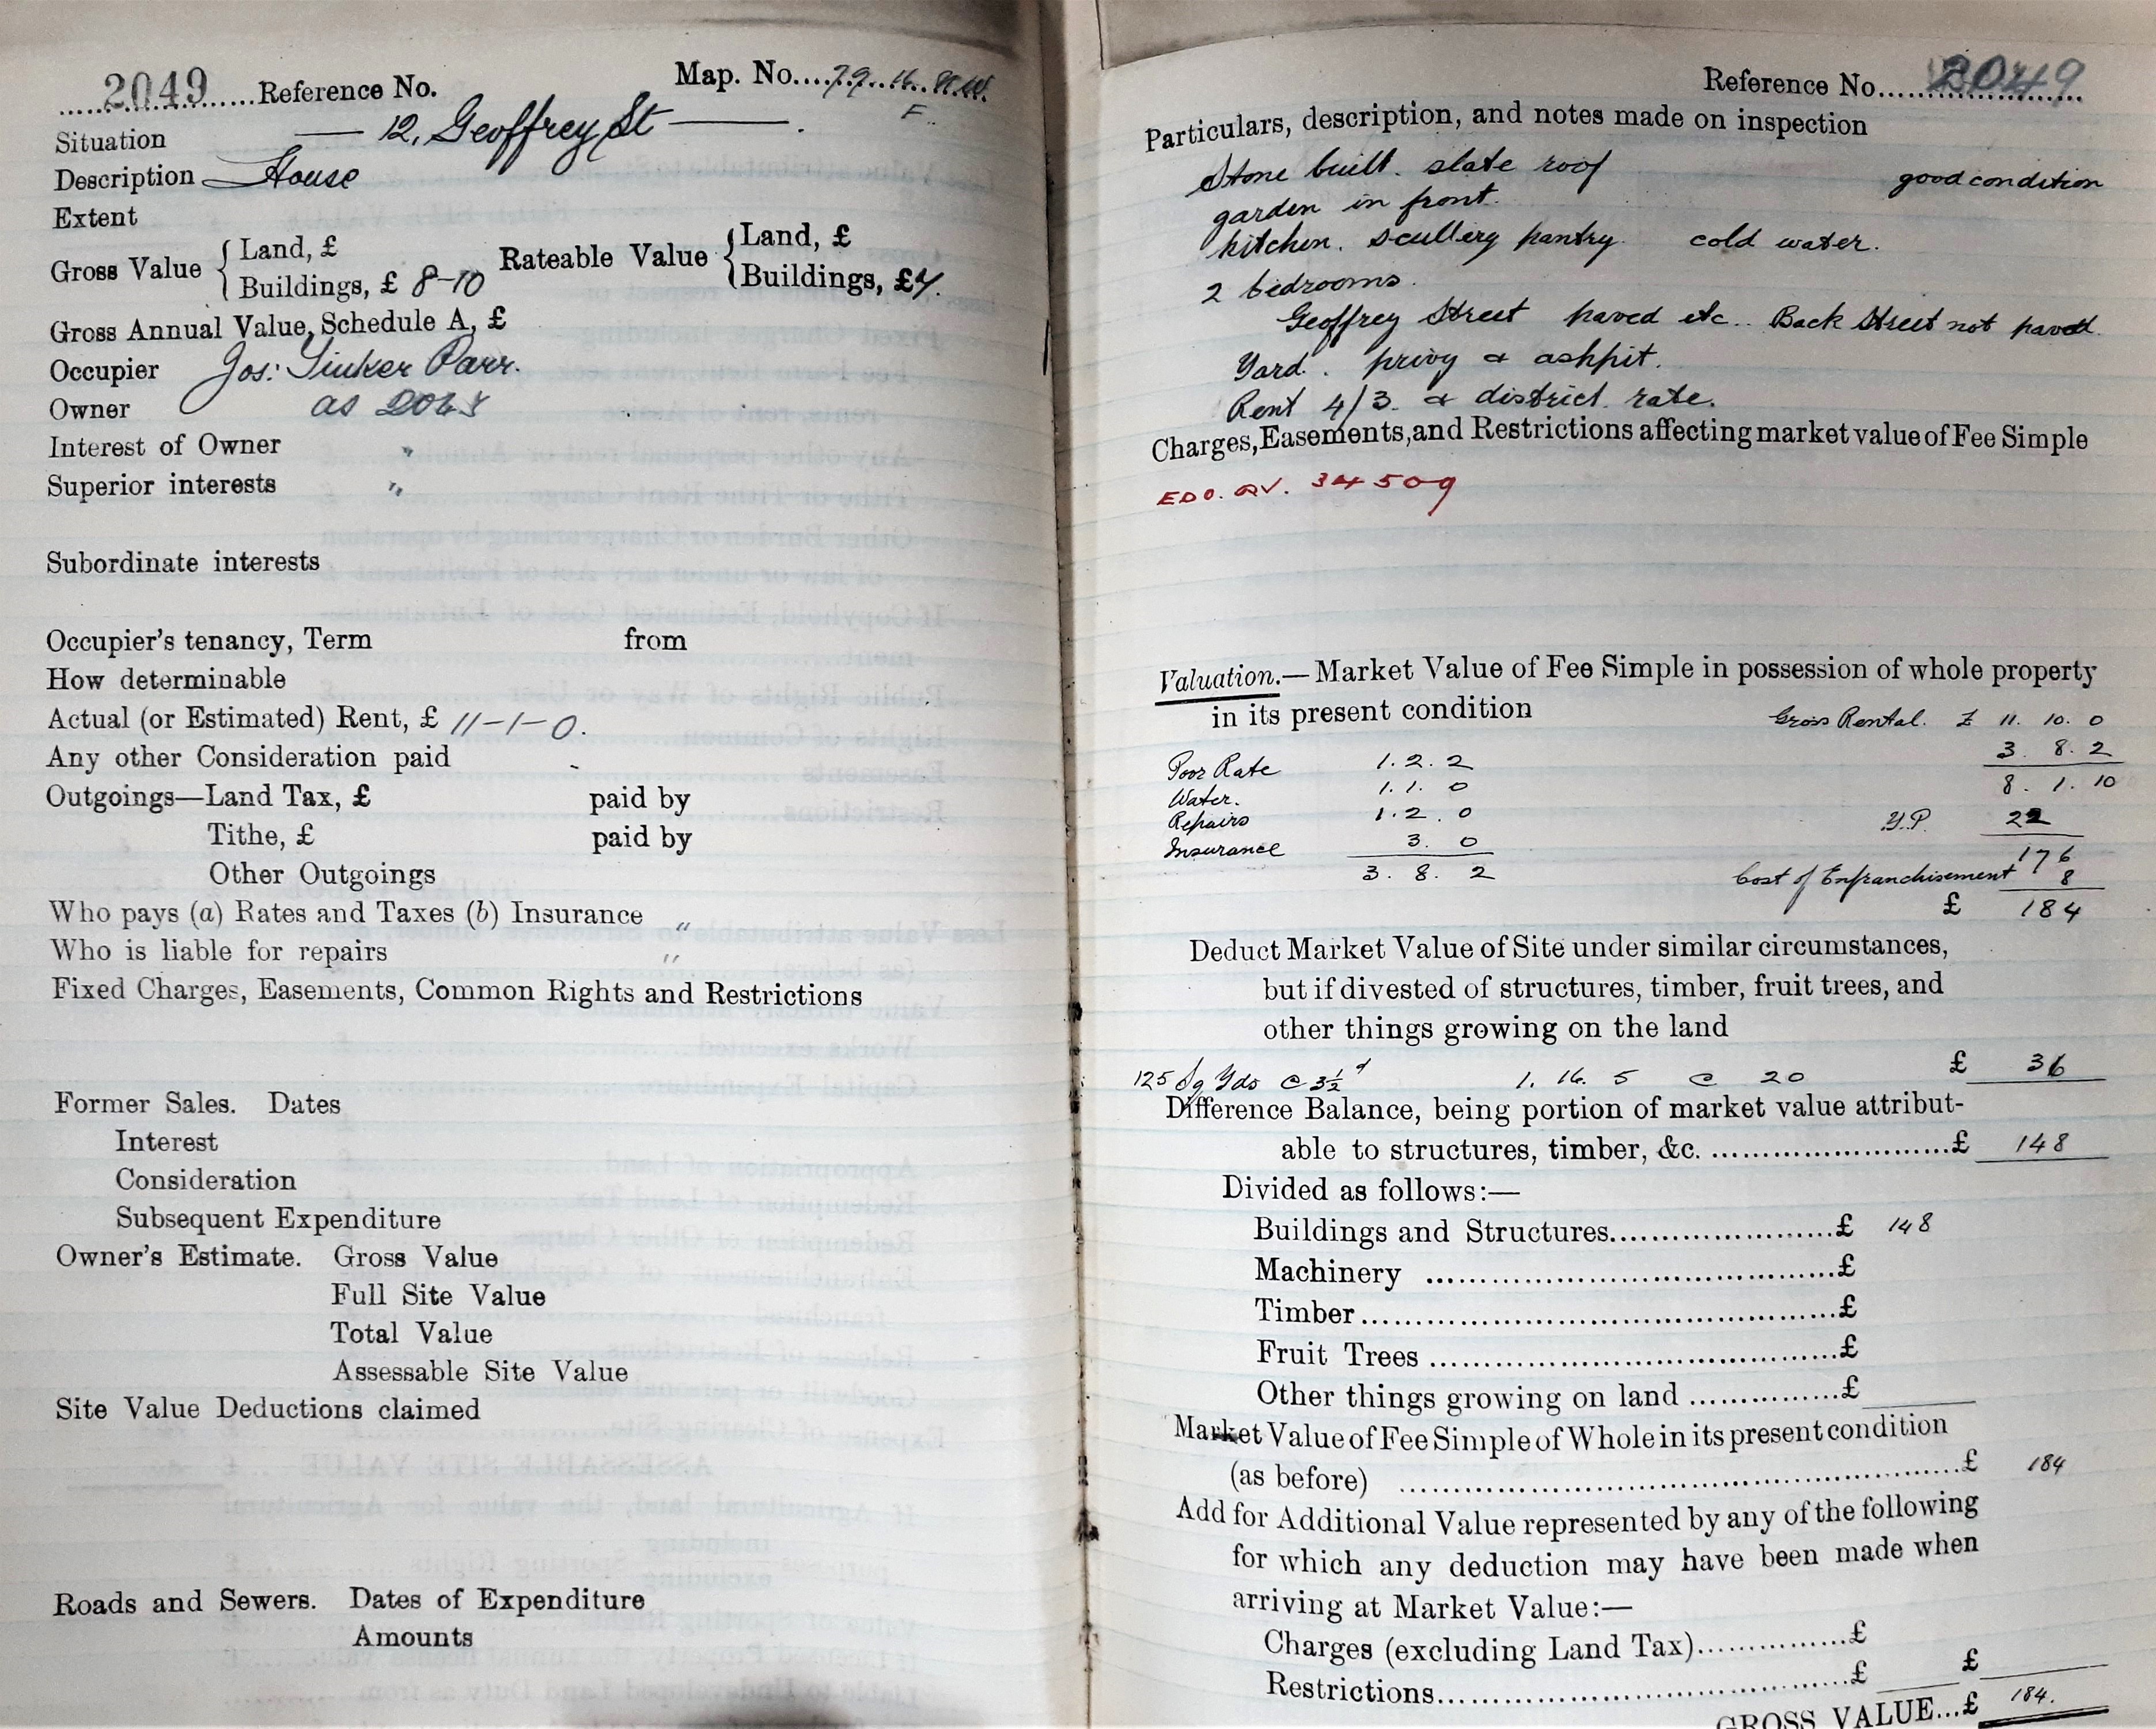 2049 Reference No. Map. No. 79. 16. N.W.
F.
Situation — 12, Geoffrey St —
Description House
Extent
Gross Value { Land, £ Rateable Value { Land, £
Buildings, £ 8-10 Buildings, £
Gross Annual Value, Schedule A, £
Occupier Jos: Tinker Parr.
Owner as
Interest of Owner "
Superior interests "
Subordinate interests
Occupier's tenancy, Term from
How determinable
Actual (or Estimated) Rent, £ 11-1-0.
Any other Consideration paid
Outgoings—Land Tax, £ paid by
Tithe, £ paid by
Other Outgoings
Who pays (a) Rates and Taxes (b) Insurance "
Who is liable for repairs "
Fixed Charges, Easements, Common Rights and Restrictions
Former Sales. Dates
Interest
Consideration
Subsequent Expenditure
Owner's Estimate. Gross Value
Full Site Value
Total Value
Assessable Site Value
Site Value Deductions claimed
Roads and Sewers. Dates of Expenditure
Amounts
Reference No. 2049
Particulars, description, and notes made on inspection
Stone built. slate roof good condition
garden in front.
kitchen. scullery pantry. cold water.
2 bedrooms.
Geoffrey Street paved etc.. Back Street not paved.
Yard. privy & ashpit.
Rent 4/3. & district rate.
Charges, Easements, and Restrictions affecting market value of Fee Simple
EDO. QV. 34509
Valuation.—Market Value of Fee Simple in possession of whole property
in its present condition Gross Rental. £ 11. 10. 0
3. 8. 2
Poor Rate 1. 2. 2 8. 1. 10
Water. 1. 1. 0
Repairs 1. 2. 0 Y.P. 22
Insurance 3. 0 176
3. 8. 2 Cost of Enfranchisement 8
£ 184
Deduct Market Value of Site under similar circumstances,
but if divested of structures, timber, fruit trees, and
other things growing on the land
125 Sq Yds @ 3½d 1. 16. 5 @ 20 £ 36
Difference Balance, being portion of market value attribut-
able to structures, timber, &c. £ 148
Divided as follows:—
Buildings and Structures £ 148
Machinery £
Timber £
Fruit Trees £
Other things growing on land £
Market Value of Fee Simple of Whole in its present condition
(as before) £ 184
Add for Additional Value represented by any of the following
for which any deduction may have been made when
arriving at Market Value:—
Charges (excluding Land Tax) £
Restrictions £ £
GROSS VALUE...£ 184.